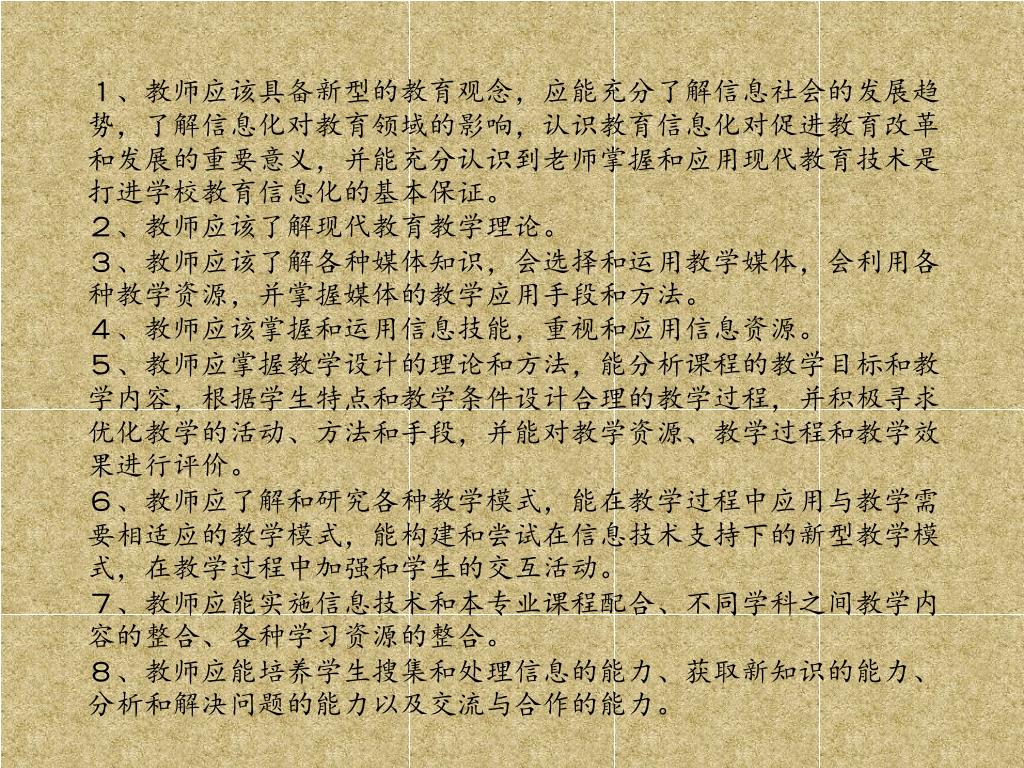 １、教师应该具备新型的教育观念，应能充分了解信息社会的发展趋
势，了解信息化对教育领域的影响，认识教育信息化对促进教育改革
和发展的重要意义，并能充分认识到老师掌握和应用现代教育技术是
打进学校教育信息化的基本保证。
２、教师应该了解现代教育教学理论。
３、教师应该了解各种媒体知识，会选择和运用教学媒体，会利用各
种教学资源，并掌握媒体的教学应用手段和方法。
４、教师应该掌握和运用信息技能，重视和应用信息资源。
５、教师应掌握教学设计的理论和方法，能分析课程的教学目标和教
学内容，根据学生特点和教学条件设计合理的教学过程，并积极寻求
优化教学的活动、方法和手段，并能对教学资源、教学过程和教学效
果进行评价。
６、教师应了解和研究各种教学模式，能在教学过程中应用与教学需
要相适应的教学模式，能构建和尝试在信息技术支持下的新型教学模
式，在教学过程中加强和学生的交互活动。
７、教师应能实施信息技术和本专业课程配合、不同学科之间教学内
容的整合、各种学习资源的整合。
８、教师应能培养学生搜集和处理信息的能力、获取新知识的能力、
分析和解决问题的能力以及交流与合作的能力。